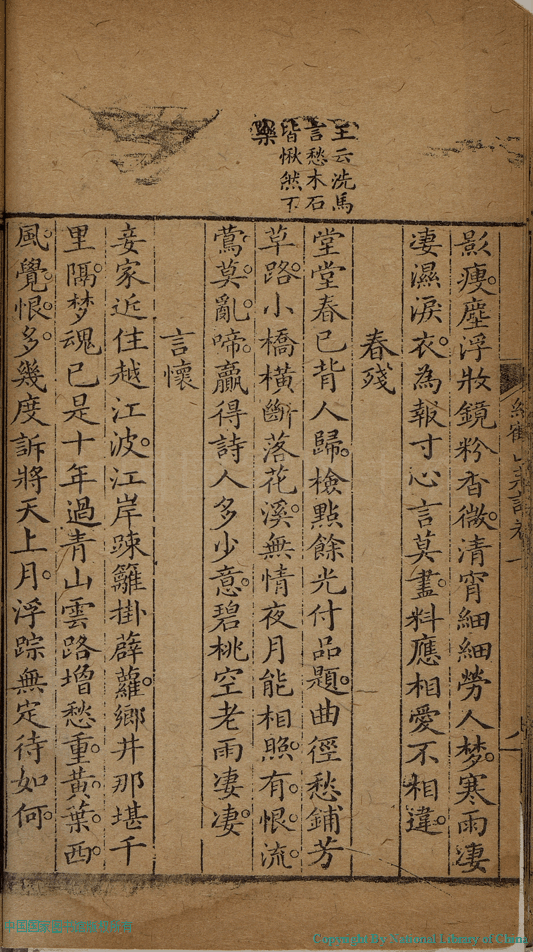 王云洗馬
言愁木石
皆愀然下
樂
影瘦塵浮妝鏡粉香微清宵細細勞人梦寒雨凄
凄濕淚衣為報寸心言莫盡料應相愛不相違
春殘
堂堂春已背人歸檢點餘光付品題曲徑愁鋪芳
草路小橋橫斷落花溪無情夜月能相照有恨流
鶯莫亂啼贏得詩人多少意碧桃空老雨凄凄
言懷
妾家近住越江波江岸踈籬掛薜蘿鄉井那堪千
里隔梦魂已是十年過青山雲路增愁重黃葉西
風覺恨多幾度訴將天上月浮踪無定待如何
Copyright By National Library of China